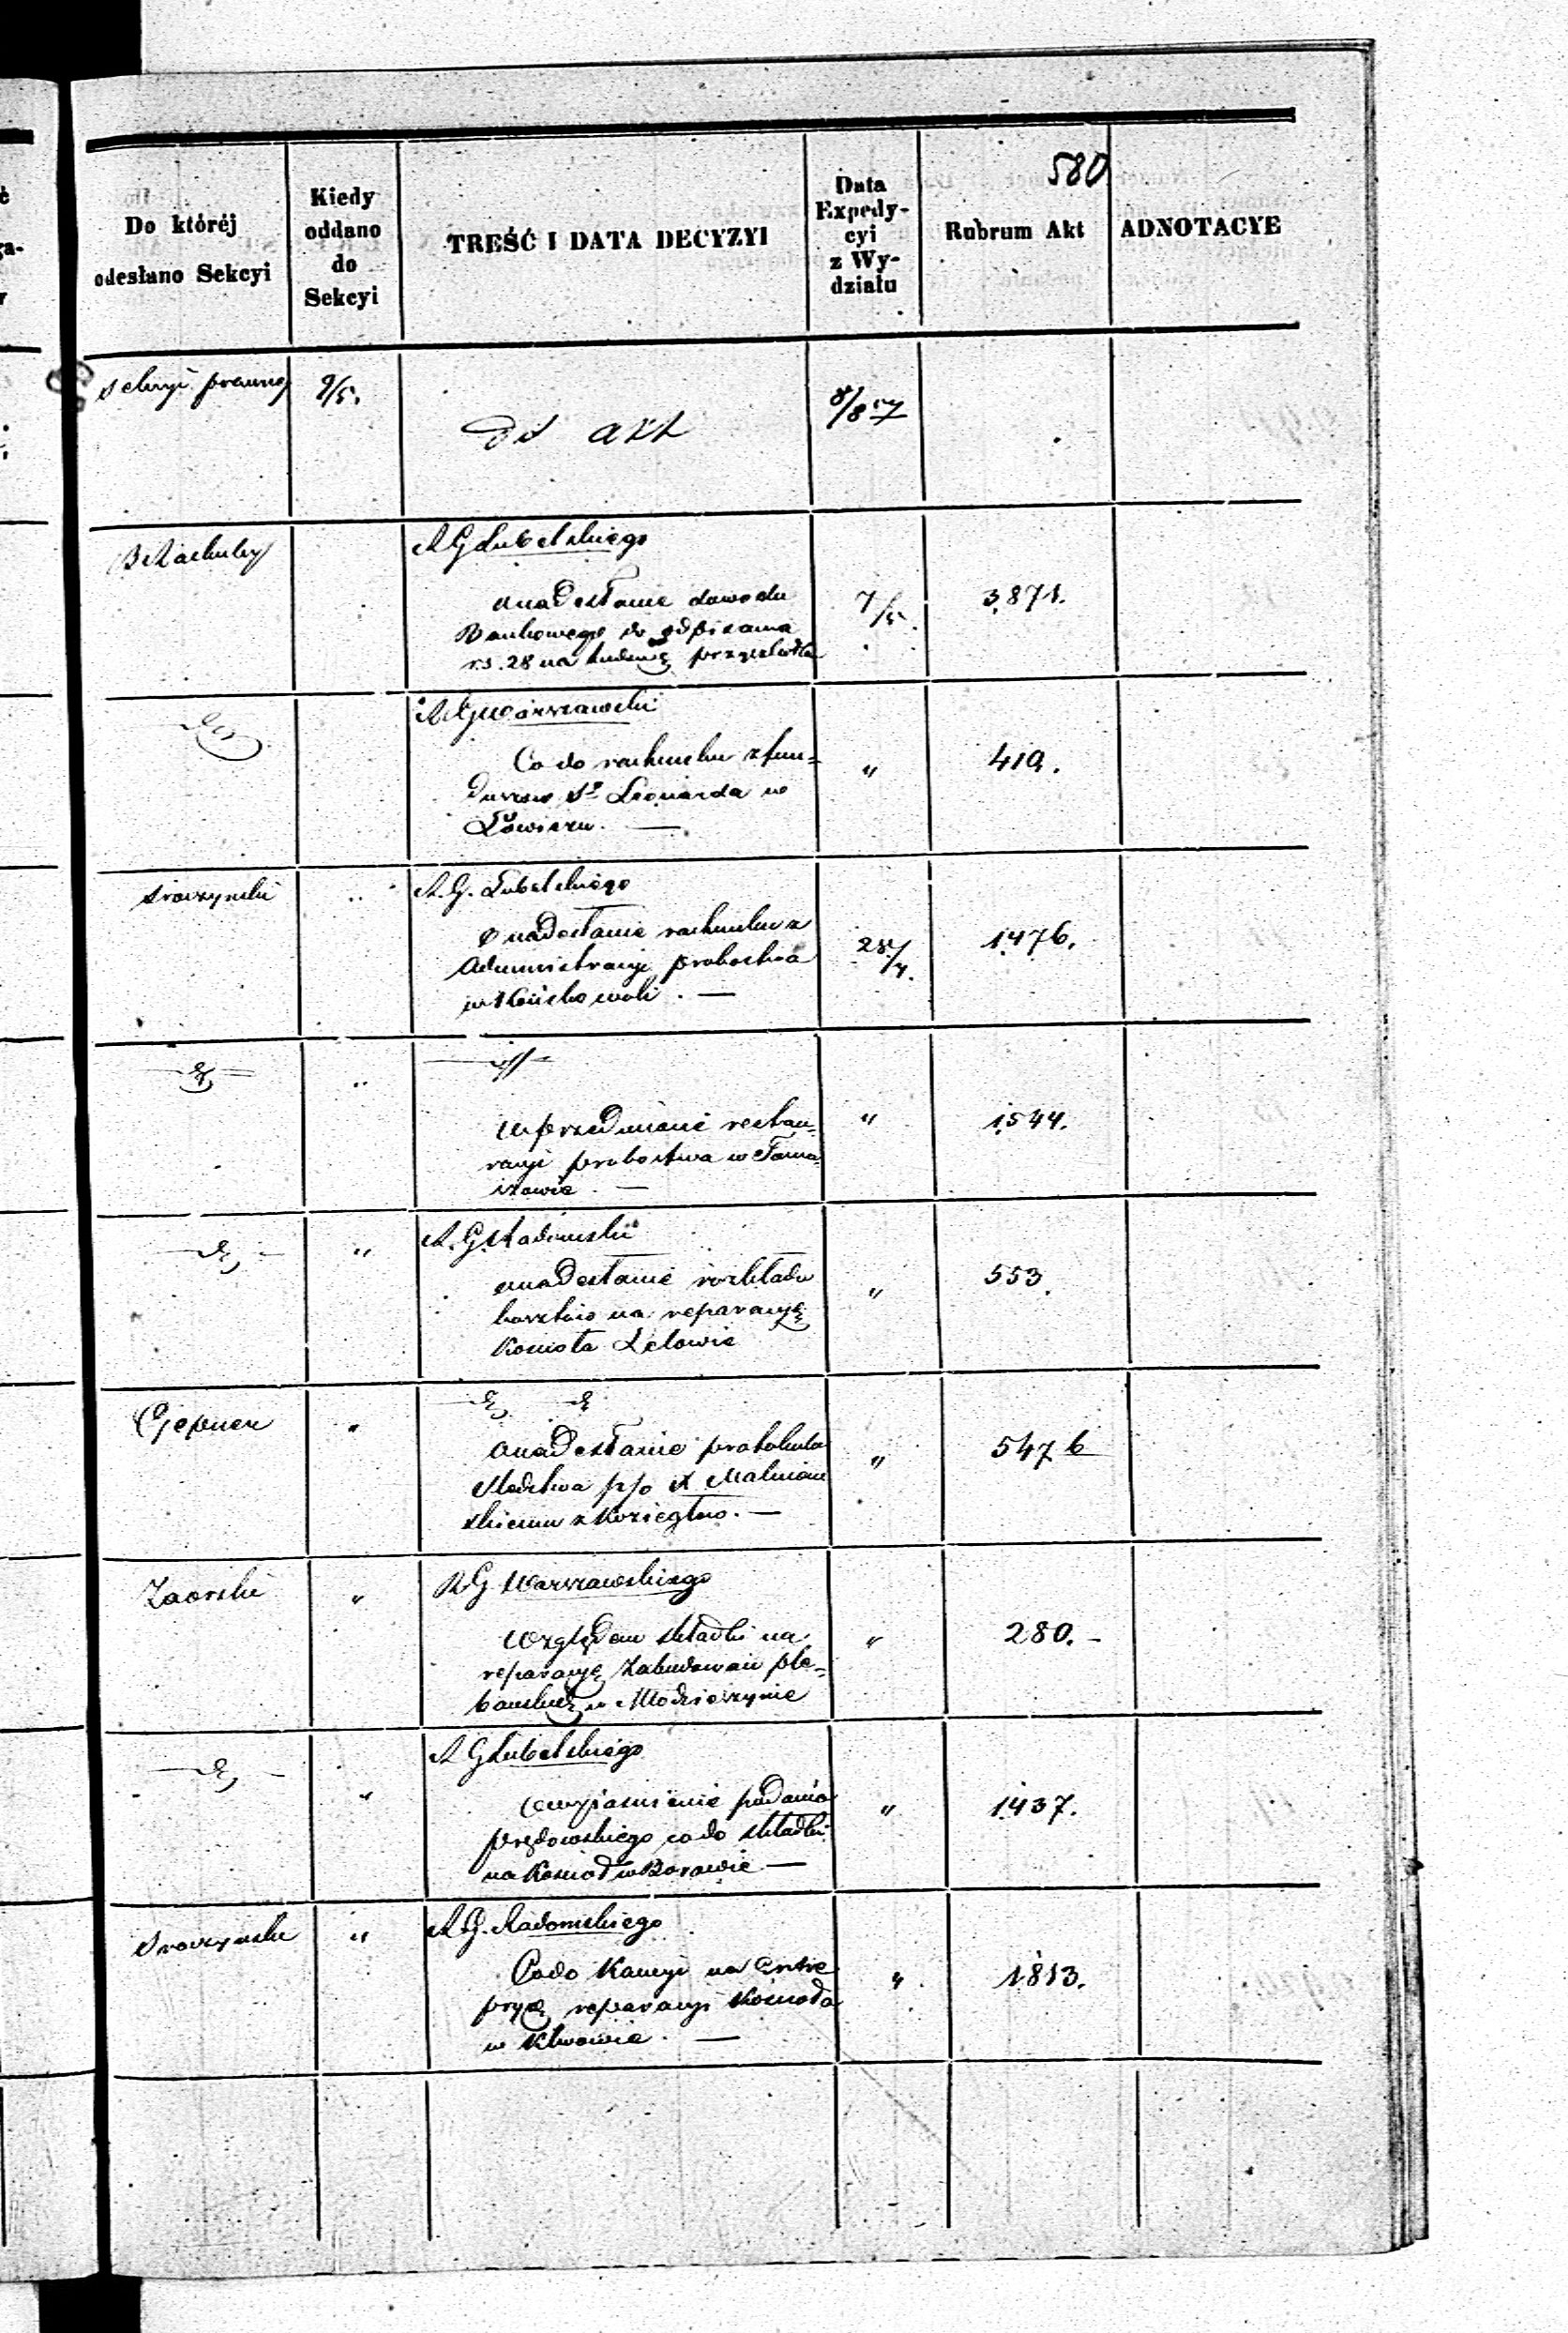 580
Do któréj odesłano Sekcyi
Kiedy oddano do Sekcyi
TREŚĆ I DATA DECYZYI
Data Expedy-cyi z Wy-działu
Rubrum Akt
ADNOTACYE
Sekcyi prawnej 9/5.
Do akt
8/8
R G Lubelskiego
o nadesłanie dowodu
Bankowego do odpisania
rs. 28 na
7/5.
3871.
do
R G Warszawski
Co do rachunku z fun=
duszów Sgo Leonarda w
Łowiczu. —
"
419.
Sroczyński "
R. G. Lubelskiego
o nadesłanie rachunku z
Administracyi probostwa
w Końskowoli. —
28/4.
1476.
do "
do
w przedmiocie restau=
racyi probostwa w Toma=
szowie. —
"
1544.
do "
R. G. Radomski
o nadesłanie rozkładu
kosztów na reparacyę
Kościoła Lelowie
"
553.
do do
Gepner "
o nadesłanie protokułu
śledztwa p/o X Malinow
skiemu z Koziegłów. —
"
547 b
Zaorski "
R G Warszawskiego
Względem składki na
reparacyę Zabudowań ple=
bańskich w Młodzieszynie
"
280. —
do "
R G Lubelskiego
o wyjaśnienie podania
co do składki
na Kościół w Borowie —
"
1437.
Sroczyński "
R. G. Radomskiego
Co do Kaucyi na Entre
pryzę reparacyi Kościoła
w Klwowie. —
"
1813.